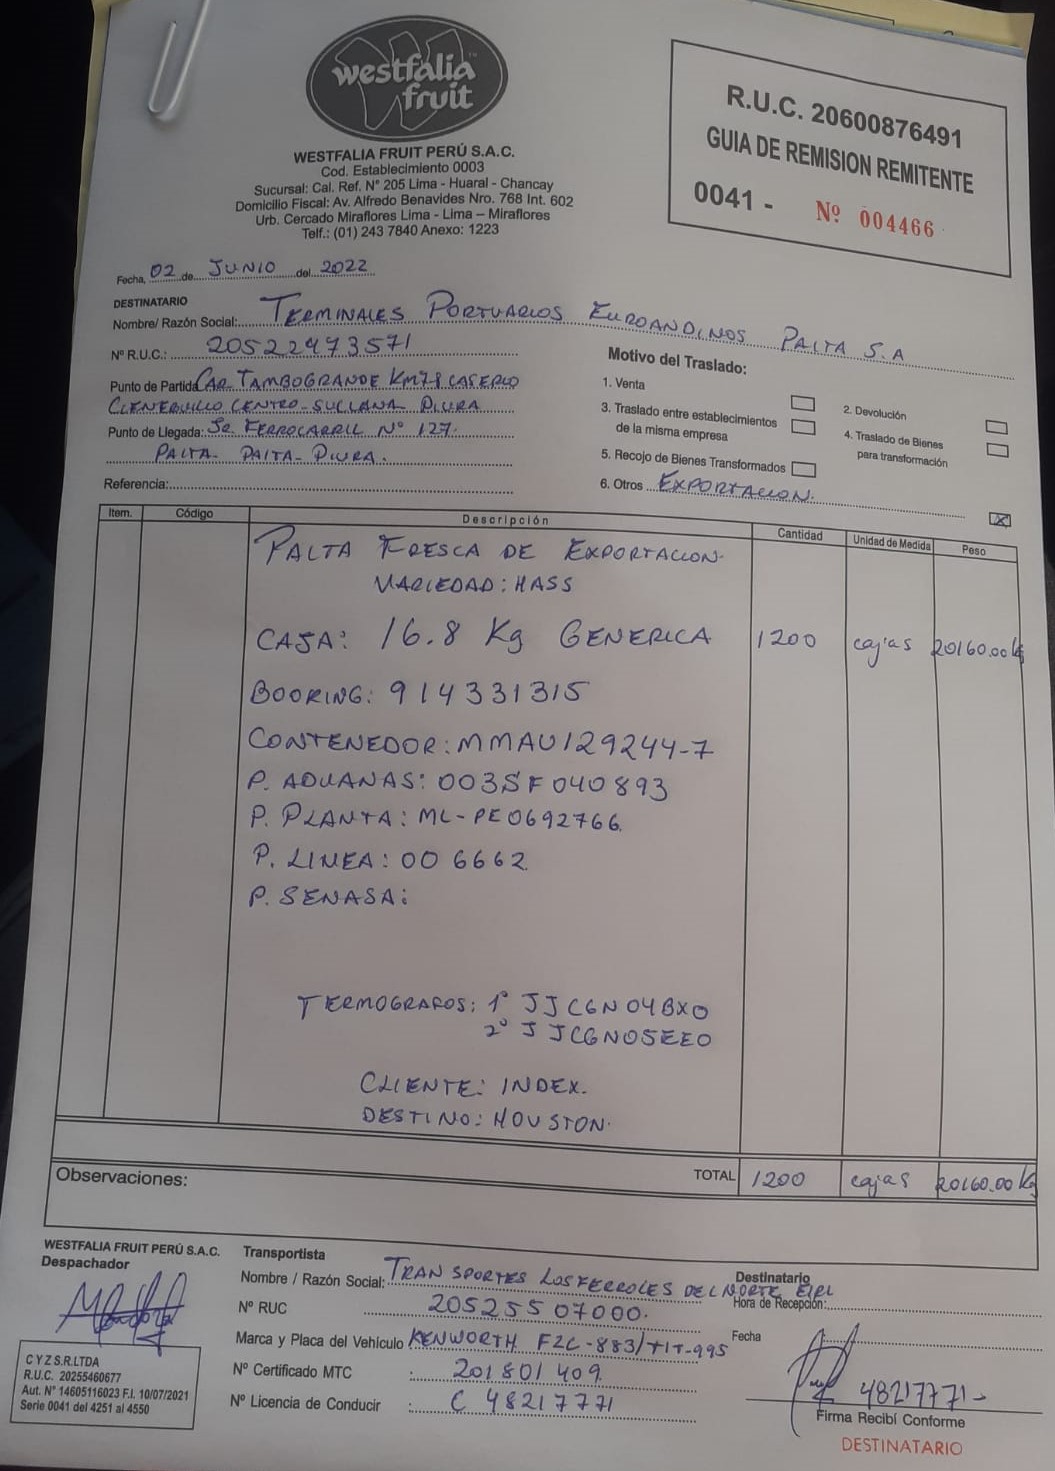 westfalia
fruit
WESTFALIA FRUIT PERÚ S.A.C.
Cod. Establecimiento 0003
Sucursal: Cal. Ref. N° 205 Lima - Huaral - Chancay
Domicilio Fiscal: Av. Alfredo Benavides Nro. 768 Int. 602
Urb. Cercado Miraflores Lima - Lima – Miraflores
Telf.: (01) 243 7840 Anexo: 1223
R.U.C. 20600876491
GUIA DE REMISION REMITENTE
0041 - Nº 004466
Fecha, 02 de JUNIO del 2022
DESTINATARIO
Nombre/ Razón Social: TERMINALES PORTUARIOS EUROANDINOS PAITA S.A
N° R.U.C.: 20522473571
Punto de Partida CAR. TAMBOGRANDE KM78 CASERIO
CIENEGUILLO CENTRO-SULLANA PIURA
Punto de Llegada: Jr. FERROCARRIL N° 127.
PAITA- PAITA- PIURA.
Referencia:
Motivo del Traslado:
1. Venta
2. Devolución
3. Traslado entre establecimientos
de la misma empresa
4. Traslado de Bienes
para transformación
5. Recojo de Bienes Transformados
6. Otros EXPORTACION. X
Item. Código Descripción Cantidad Unidad de Medida Peso
PALTA FRESCA DE EXPORTACION.
VARIEDAD: HASS
CAJA: 16.8 Kg GENERICA 1200 cajas 20160.00 kg
BOOKING: 914331315
CONTENEDOR: MMAU129244-7
P. ADUANAS: 003SF040893
P. PLANTA: ML-PE0692766
P. LINEA: 006662
P. SENASA:
TERMOGRAFOS: 1° JJCGN04BXO
2° JJCGN05EEO
CLIENTE: INDEX.
DESTINO: HOUSTON.
TOTAL 1200 cajas 20160.00 Kg
Observaciones:
WESTFALIA FRUIT PERÚ S.A.C.
Despachador
Transportista
Nombre / Razón Social: TRANSPORTES LOS FERROLES DEL NORTE EIRL
N° RUC 20525507000.
Marca y Placa del Vehículo KENWORTH F2C-883/T1T-995
Nº Certificado MTC : 201801409
Nº Licencia de Conducir : C 48217771
Destinatario
Hora de Recepción:
Fecha
48217771-
Firma Recibí Conforme
DESTINATARIO
C Y Z S.R.LTDA
R.U.C. 20255460677
Aut. N° 14605116023 F.I. 10/07/2021
Serie 0041 del 4251 al 4550